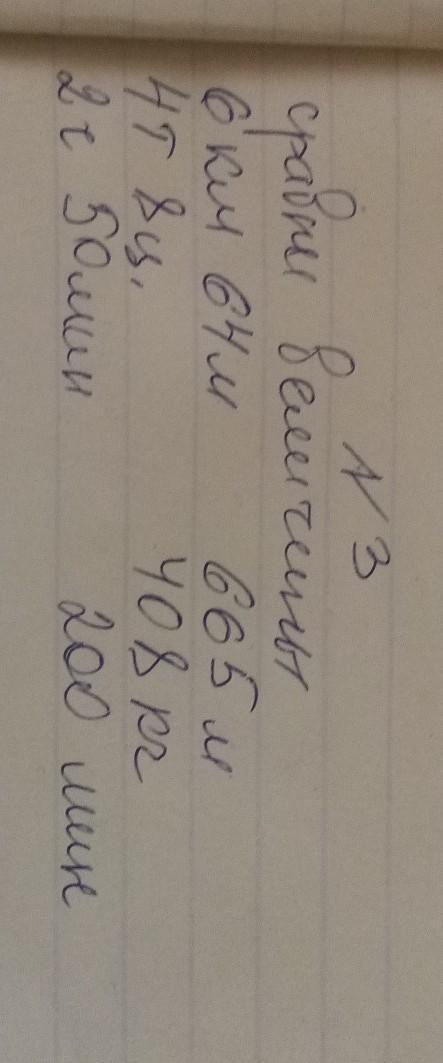 N 3
сравни величины
6 км 64 м 665 м
4 т 8 ц. 408 кг
2 ч 50 мин 200 мин